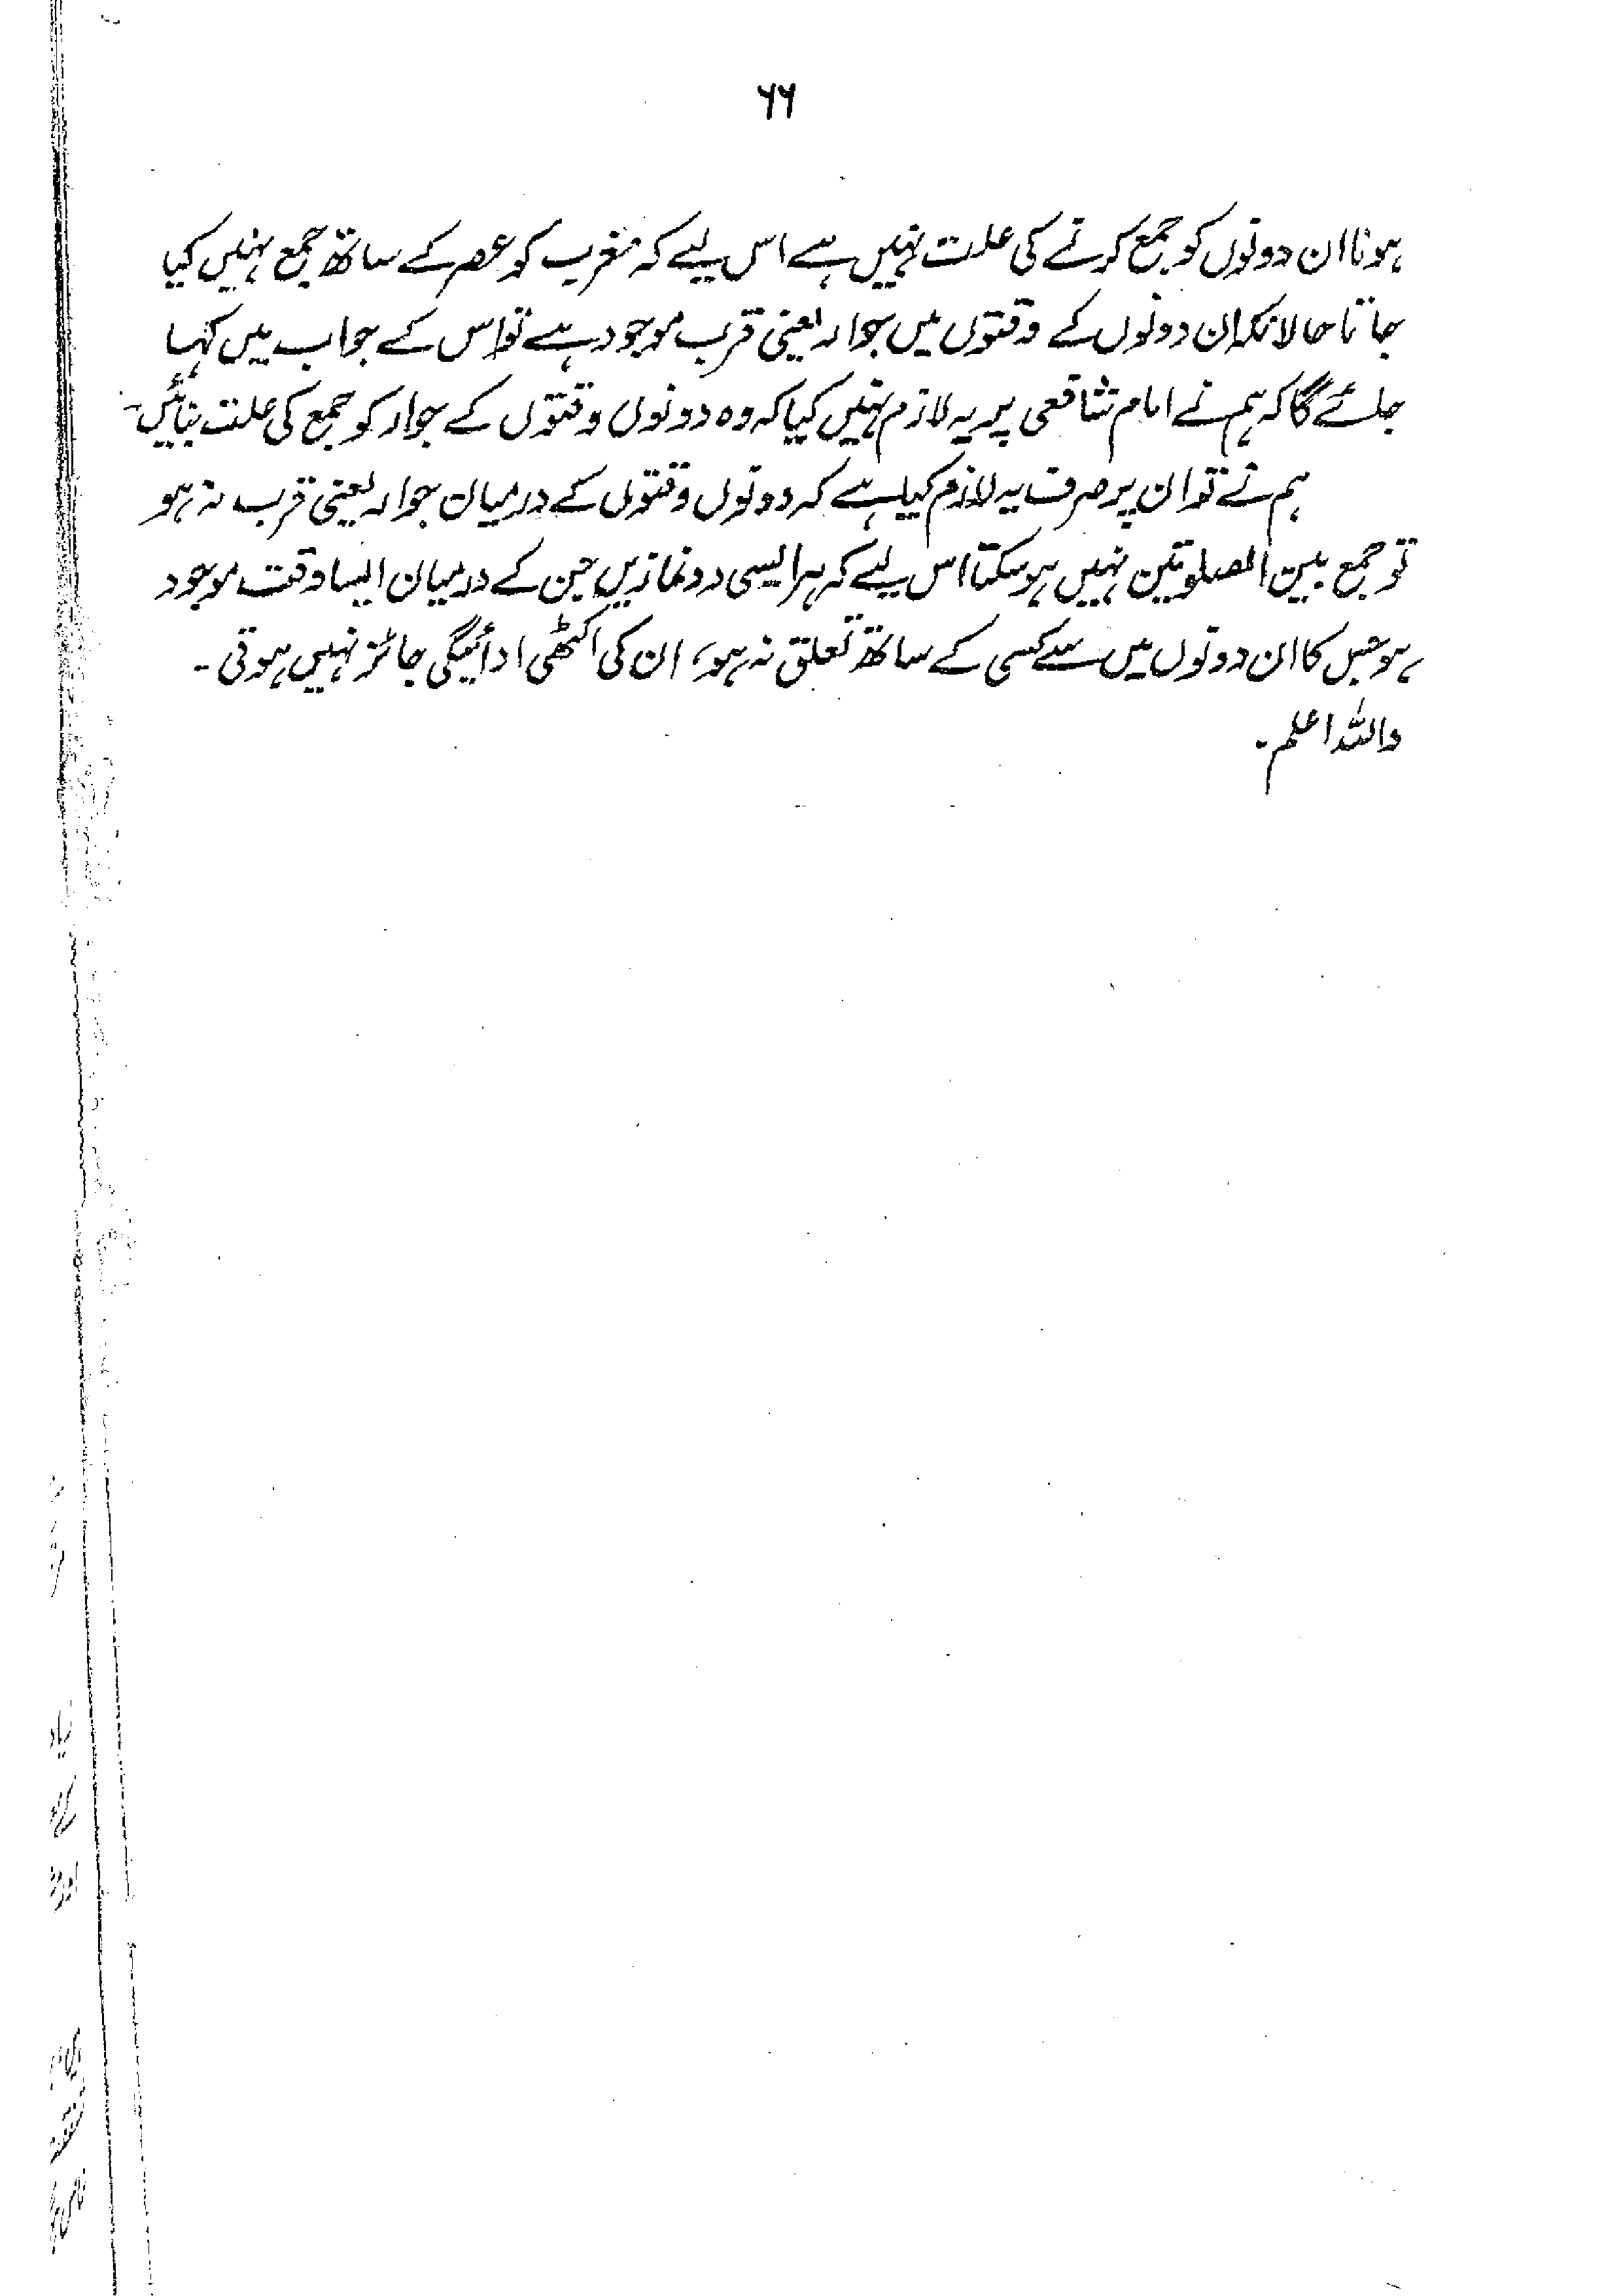 ۶۶
ہونا ان دونوں کو جمع کرنے کی علت نہیں ہے اس لیے کہ مغرب کو عصر کے ساتھ جمع نہیں کیا
جاتا حالانکہ ان دونوں کے وقتوں میں جوار یعنی قرب موجود ہے تو اس کے جواب میں کہا
جائے گا کہ ہم نے امام شافعی پر یہ لازم نہیں کیا کہ وہ دونوں وقتوں کے جوار کو جمع کی علت بنائیں۔
ہم نے تو ان پر صرف یہ لازم کیا ہے کہ دونوں وقتوں کے درمیان جوار یعنی قرب نہ ہو
تو جمع بین الصلوتین نہیں ہو سکتا اس لیے کہ ہر ایسی دو نمازیں جن کے درمیان ایسا وقت موجود
ہو جس کا ان دونوں میں سے کسی کے ساتھ تعلق نہ ہو، ان کی اکٹھی ادائیگی جائز نہیں ہوتی۔
واللہ اعلم۔